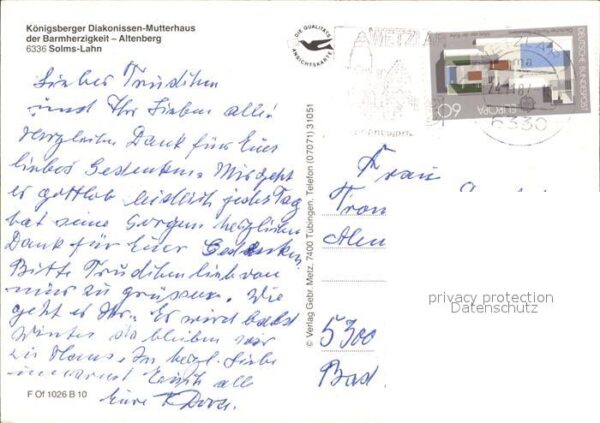 Königsberger Diakonissen-Mutterhaus
der Barmherzigkeit – Altenberg
6336 Solms-Lahn
Liebes Trudchen
und Ihr Lieben alle!
Herzlichen Dank für Euer
liebes Gedenken. Mir geht
es gottlob leidlich, jeder Tag
hat seine Sorgen herzlichen
Dank für Euer Gedenken.
Bitte Trudchen lieb von
mir zu grüssen. Wie
geht es Ihr. Es wird bald
Winter da bleiben wir
zu Haus. In herzl. Liebe
Euch alle
Eure Dora.
F Of 1026 B 10
DIE QUALITÄTS
ANSICHTSKARTE
© Verlag Gebr. Metz, 7400 Tübingen, Telefon (07071) 31051
WETZLAR
6330
DEUTSCHE BUNDESPOST
EUROPA
60
Frau
5300
Bad
privacy protection
Datenschutz